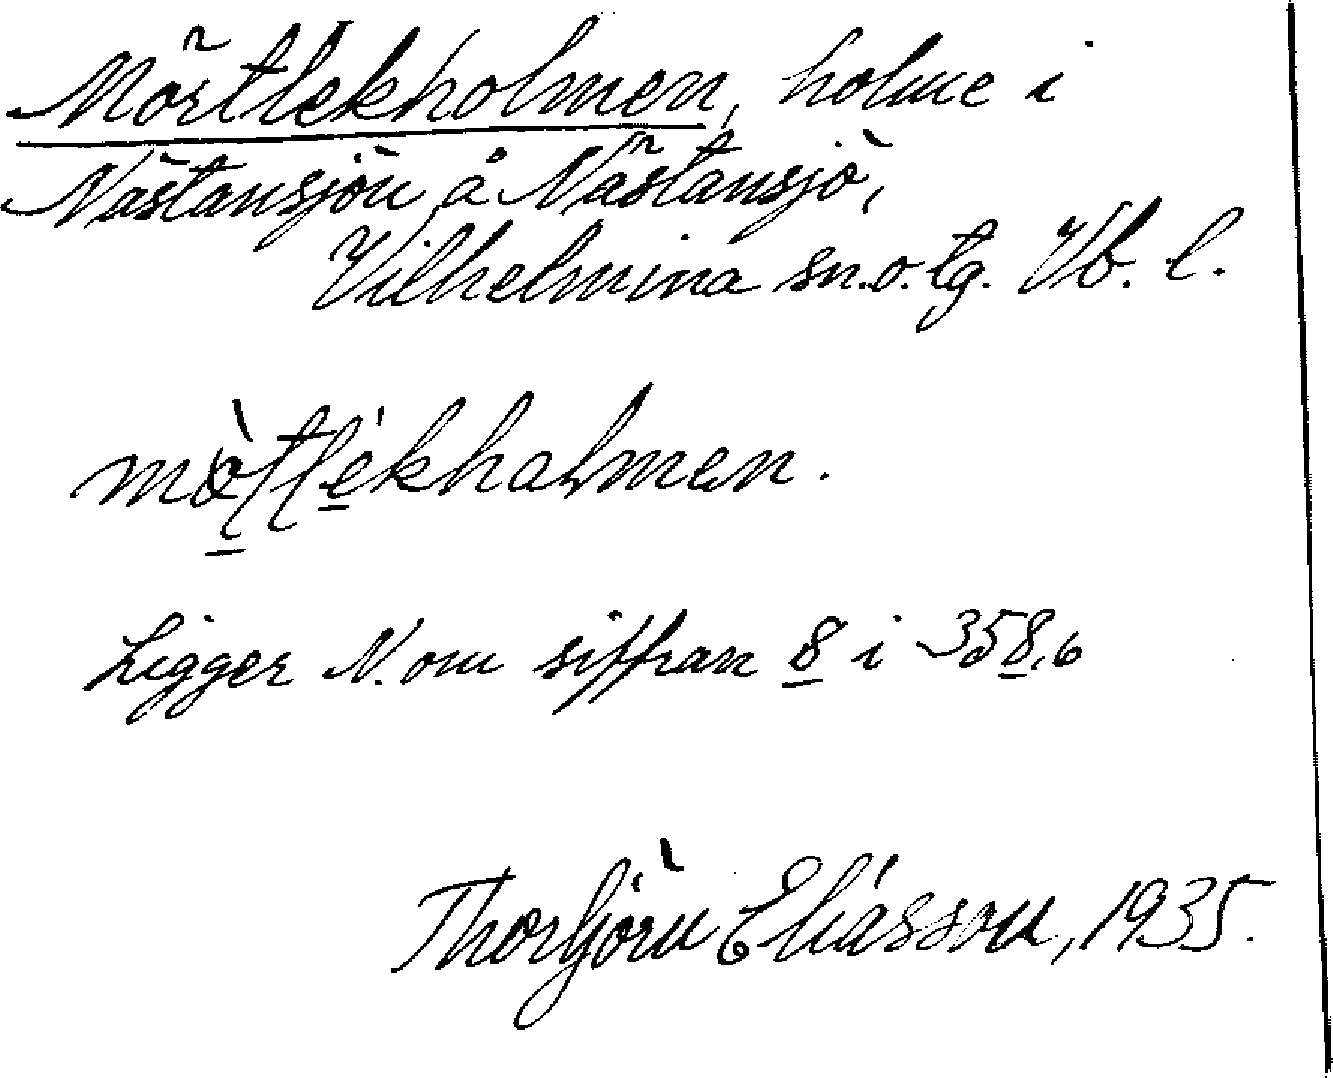 Mörtlekholmen, holme i
Nästansjön å Nästansjö,
Vilhelmina sn. o. tg. Vb. l.
mö̀tlékholmen.
Ligger N. om siffran 8 i 358,6
Thorbjörn Eliasson, 1935.